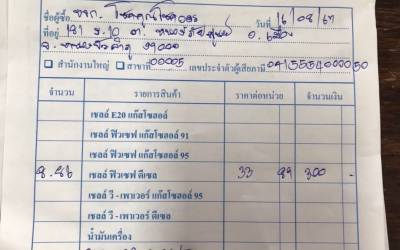 ชื่อผู้ซื้อ หจก. โชคคูณโชค วันที่ 16/08/67
ที่อยู่ 191 ม.10 ต. อ.เมือง
จ. 39000
สำนักงานใหญ่ สาขาที่ 00005 เลขประจำตัวผู้เสียภาษี
จำนวน รายการสินค้า ราคาต่อหน่วย จำนวนเงิน
เชลล์ E20 แก๊สโซฮอล์
เชลล์ ฟิวเซฟ แก๊สโซฮอล์ 91
เชลล์ ฟิวเซฟ แก๊สโซฮอล์ 95
8.86 เชลล์ ฟิวเซฟ ดีเซล 33 84 300
เชลล์ วี - เพาเวอร์ แก๊สโซฮอล์ 95
เชลล์ วี - เพาเวอร์ ดีเซล
น้ำมันเครื่อง